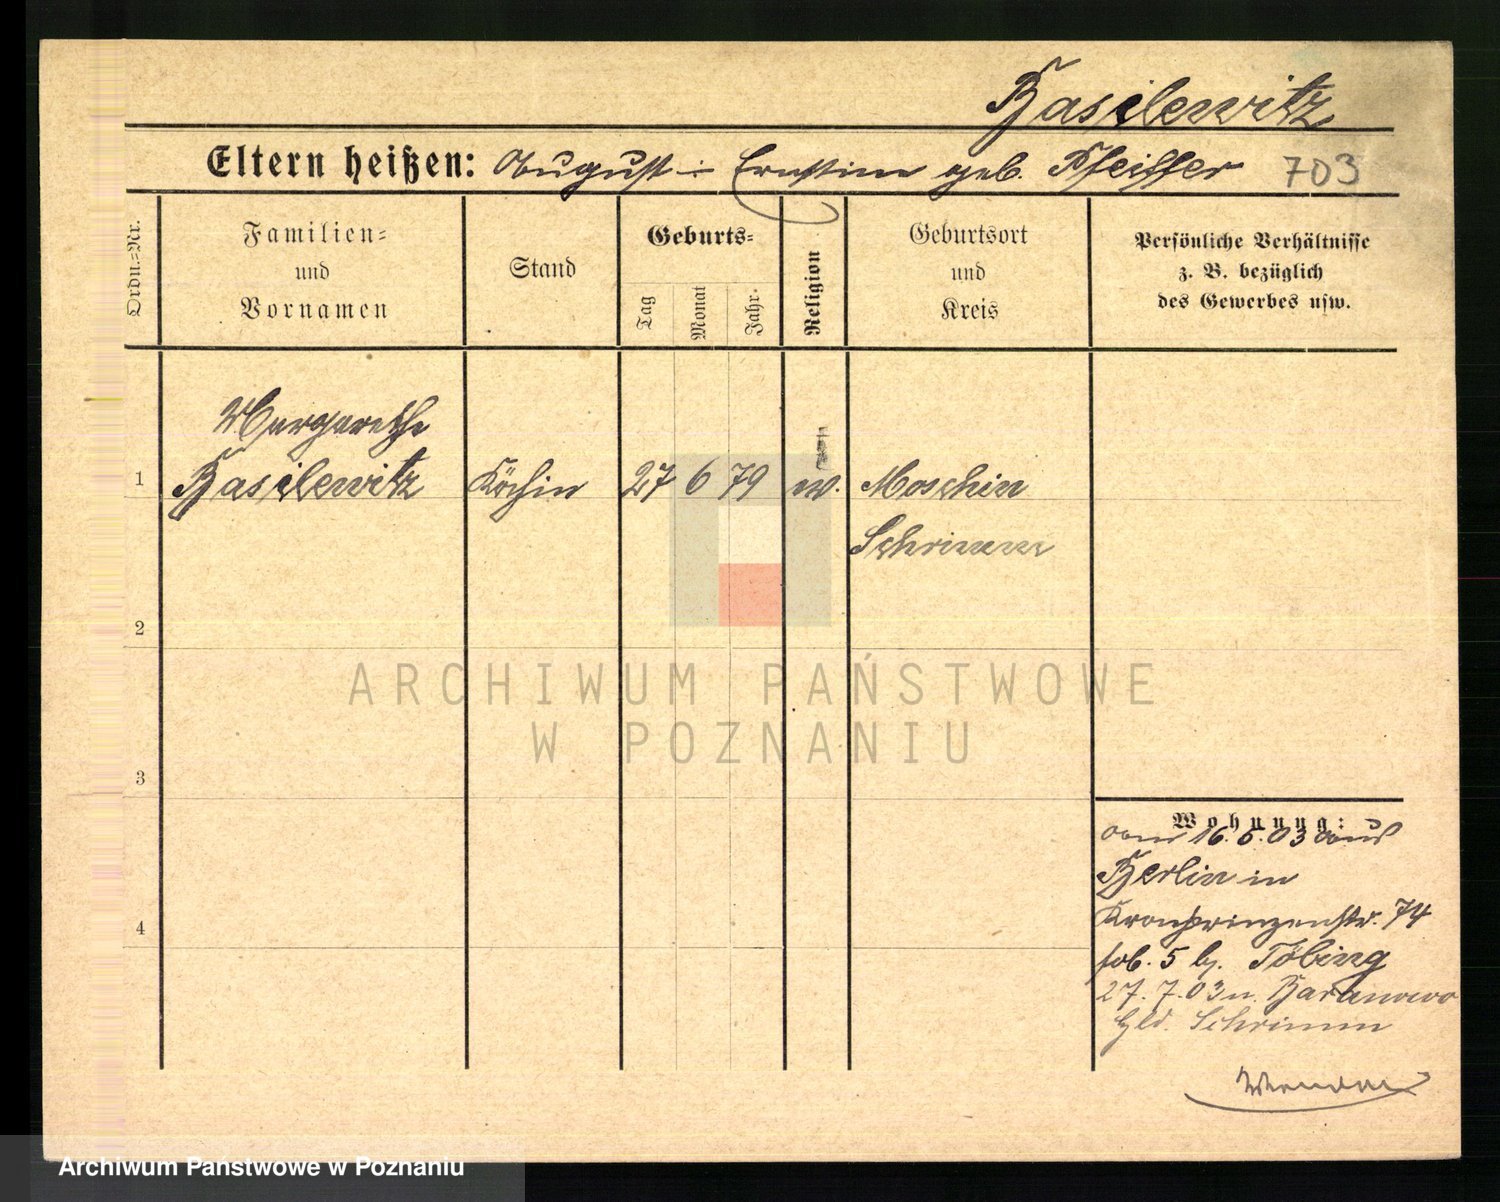 Basilewitz
Eltern heißen: August - Ernstine geb. Pfeiffer 703
Ordn.-Nr.
Familien-
und
Vornamen
Stand
Geburts-
Tag
Monat
Jahr.
Religion
Geburtsort
und
Kreis
Persönliche Verhältnisse
z. B. bezüglich
des Gewerbes usw.
Margarethe
1 Basilewitz Köchin 27 6 79 ev. Moschin
Schrimm
2
3
4
Wohnung:
16. 03 aus
Berlin in
Kronprinzenstr. 74
5 b. Töbing
27. 7. 03 n. Baranowo
Schrimm
ARCHIWUM PAŃSTWOWE
W POZNANIU
Archiwum Państwowe w Poznaniu